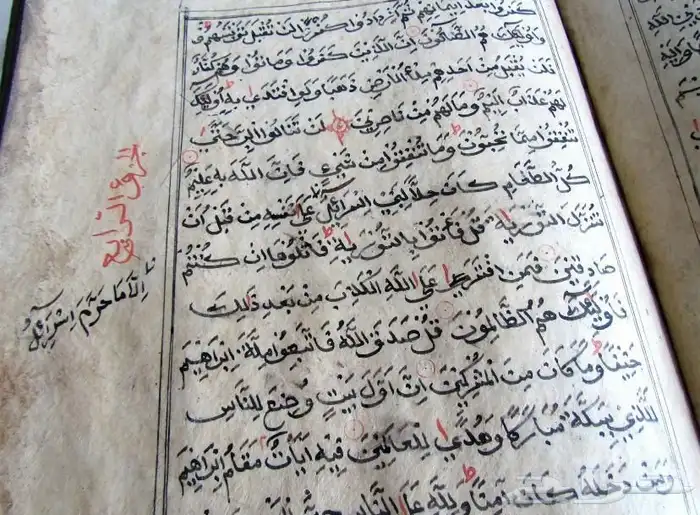 كفروا بعد ايمانهم ثم ازدادوا كفرا لن تقبل توبتهم و
واولئك هم الضالون ان الذين كفروا وماتوا وهم كفار
فلن يقبل من احدهم ملء الارض ذهبا ولو افتدى به اولئك
لهم عذاب اليم وما لهم من ناصرين لن تنالوا البر حتى
تنفقوا مما تحبون وما تنفقوا من شيء فان الله به عليم
كل الطعام كان حلا لبني اسرائل على نفسه من قبل ان
تنزل التورية قل فأتوا بالتورية فاتلوها ان كنتم
صادقين فمن افترى على الله الكذب من بعد ذلك
فاولئك هم الظالمون قل صدق الله فاتبعوا ملة ابراهيم
حنيفا وما كان من المشركين ان اول بيت وضع للناس
للذي ببكة مباركا وهدى للعالمين فيه ايات مقام ابراهيم
ومن دخله كان آمنا ولله على الناس
الجزؤ الرابع
الا ما حرم اسرائل